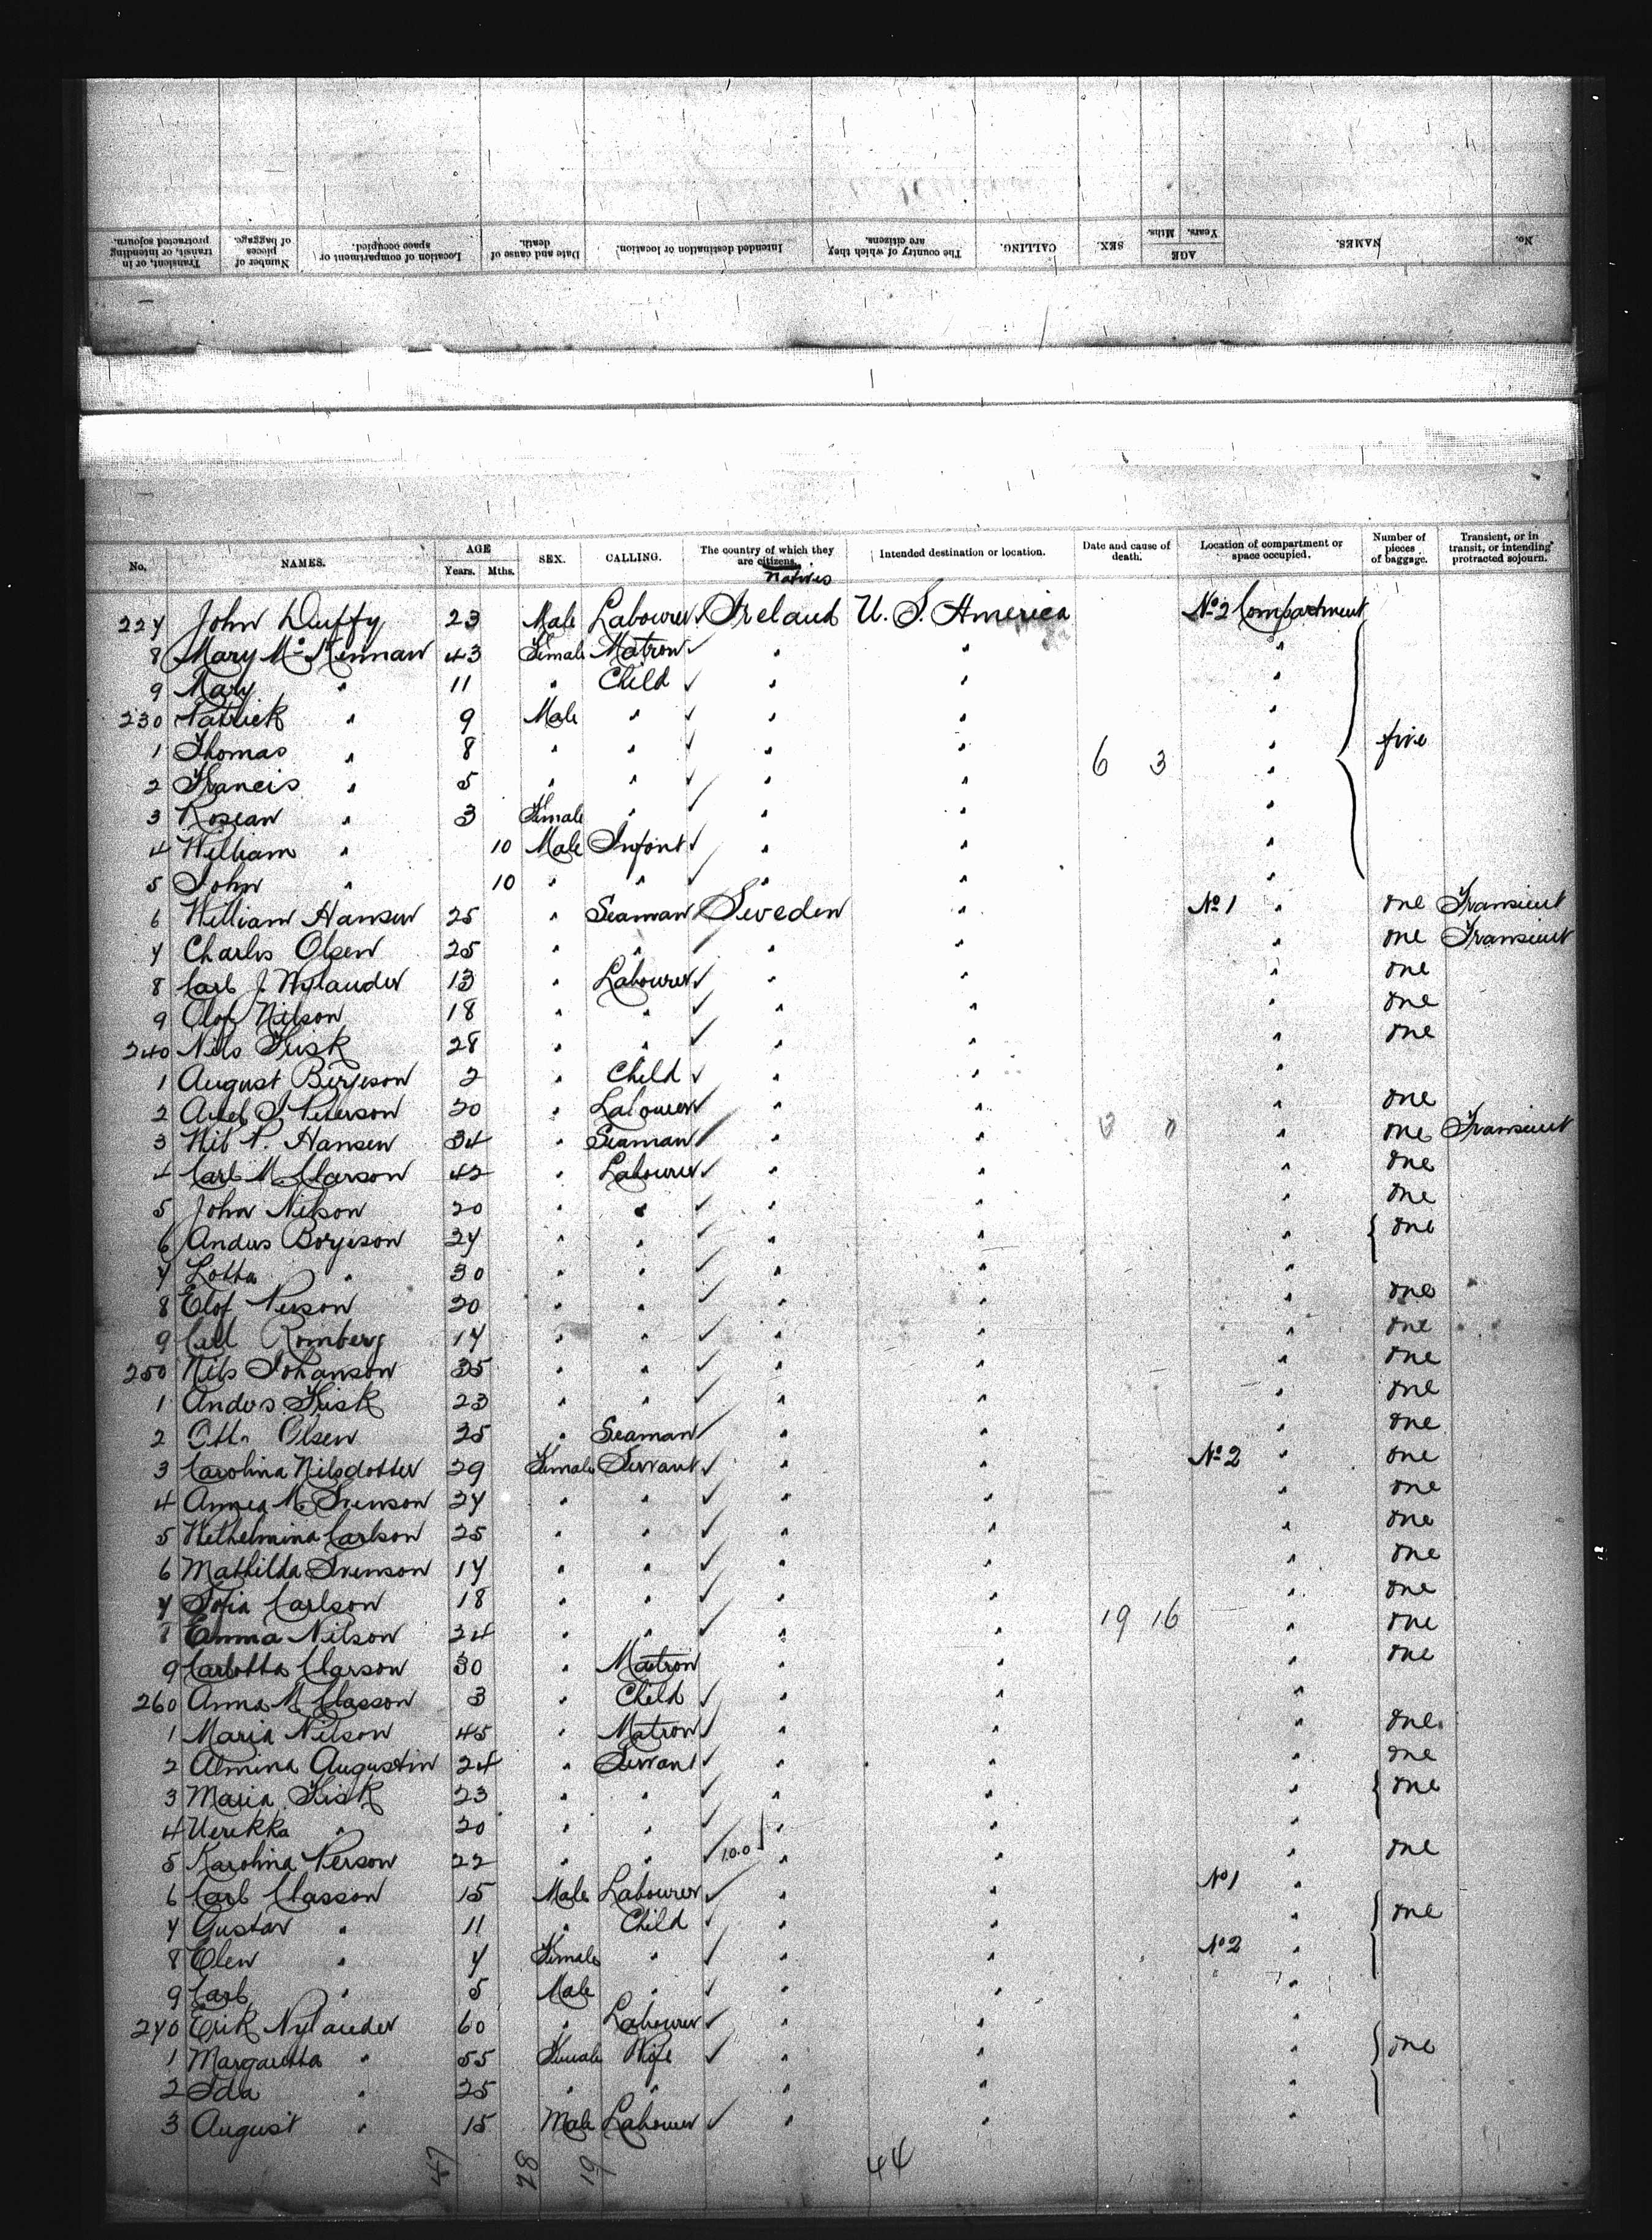 No. NAMES. AGE Years. Mths. SEX. CALLING. The country of which they are citizens. Intended destination or location. Date and cause of death. Location of compartment or space occupied. Number of pieces of baggage. Transient, or in transit, or intending protracted sojourn.
No. NAMES. AGE Years. Mths. SEX. CALLING. The country of which they are citizens. natives Intended destination or location. Date and cause of death. Location of compartment or space occupied. Number of pieces of baggage. Transient, or in transit, or intending protracted sojourn.
227 John Duffy 23 Male Labourer Ireland U. S. America No 2 Compartment
8 Mary Mc Kennan 43 Female Matron " " "
9 Mary " 11 " Child " " "
230 Patrick " 9 Male " " " "
1 Thomas " 8 " " " " " five
2 Francis " 5 " " " " 6 3 "
3 Rosean " 3 Female " " " "
4 William " 10 Male Infant " " "
5 John " 10 " " " " "
6 William Hansen 25 " Seaman Sweden " No 1 " one Transient
7 Charles Olsen 25 " " " " " one Transient
8 Carl J. Nylander 13 " Labourer " " " one
9 Olof Nilson 18 " " " " " one
240 Nils Frisk 28 " " " " " one
1 August Berjeson 2 " Child " " "
2 Axel J Peterson 20 " Labourer " " " one
3 Nils P. Hansen 34 " Seaman " " 3 0 " one Transient
4 Carl M. Clarson 42 " Labourer " " " one
5 John Nilson 20 " " " " " one
6 Andus Borjeson 27 " " " " " one
7 Lotta " 30 " " " " "
8 Elof Person 20 " " " " " one
9 Carl Romberg 17 " " " " " one
250 Nils Johanson 35 " " " " " one
1 Anders Frisk 23 " " " " " one
2 Otto Olsen 25 " Seaman " " " one
3 Carolina Nilsdotter 29 Female Servant " " No 2 " one
4 Annea M. Svenson 27 " " " " " one
5 Wilhelmina Carlson 25 " " " " " one
6 Mathilda Svenson 17 " " " " " one
7 Sofia Carlson 18 " " " " " one
8 Emma Nilson 24 " " " " 19 16 " one
9 Carlotta Clarson 30 " Matron " " " one
260 Anna M Classon 3 " Child " " "
1 Maria Nilson 45 " Matron " " " one
2 Almina Augustin 24 " Servant " " " one
3 Maria Frisk 23 " " " " " one
4 Uerikka " 20 " " " " "
5 Karolina Person 22 " " 100 " " " one
6 Carl Classon 15 Male Labourer " " No 1 "
7 Gustav " 11 " Child " " " one
8 Elen " 7 Female " " " No 2 "
9 Carl " 5 Male " " " "
270 Erik Nylander 60 " Labourer " " "
1 Margaretta " 55 Female Wife " " " one
2 Ida " 25 " " " " "
3 August " 15 Male Labourer " " "
47 28 19 44